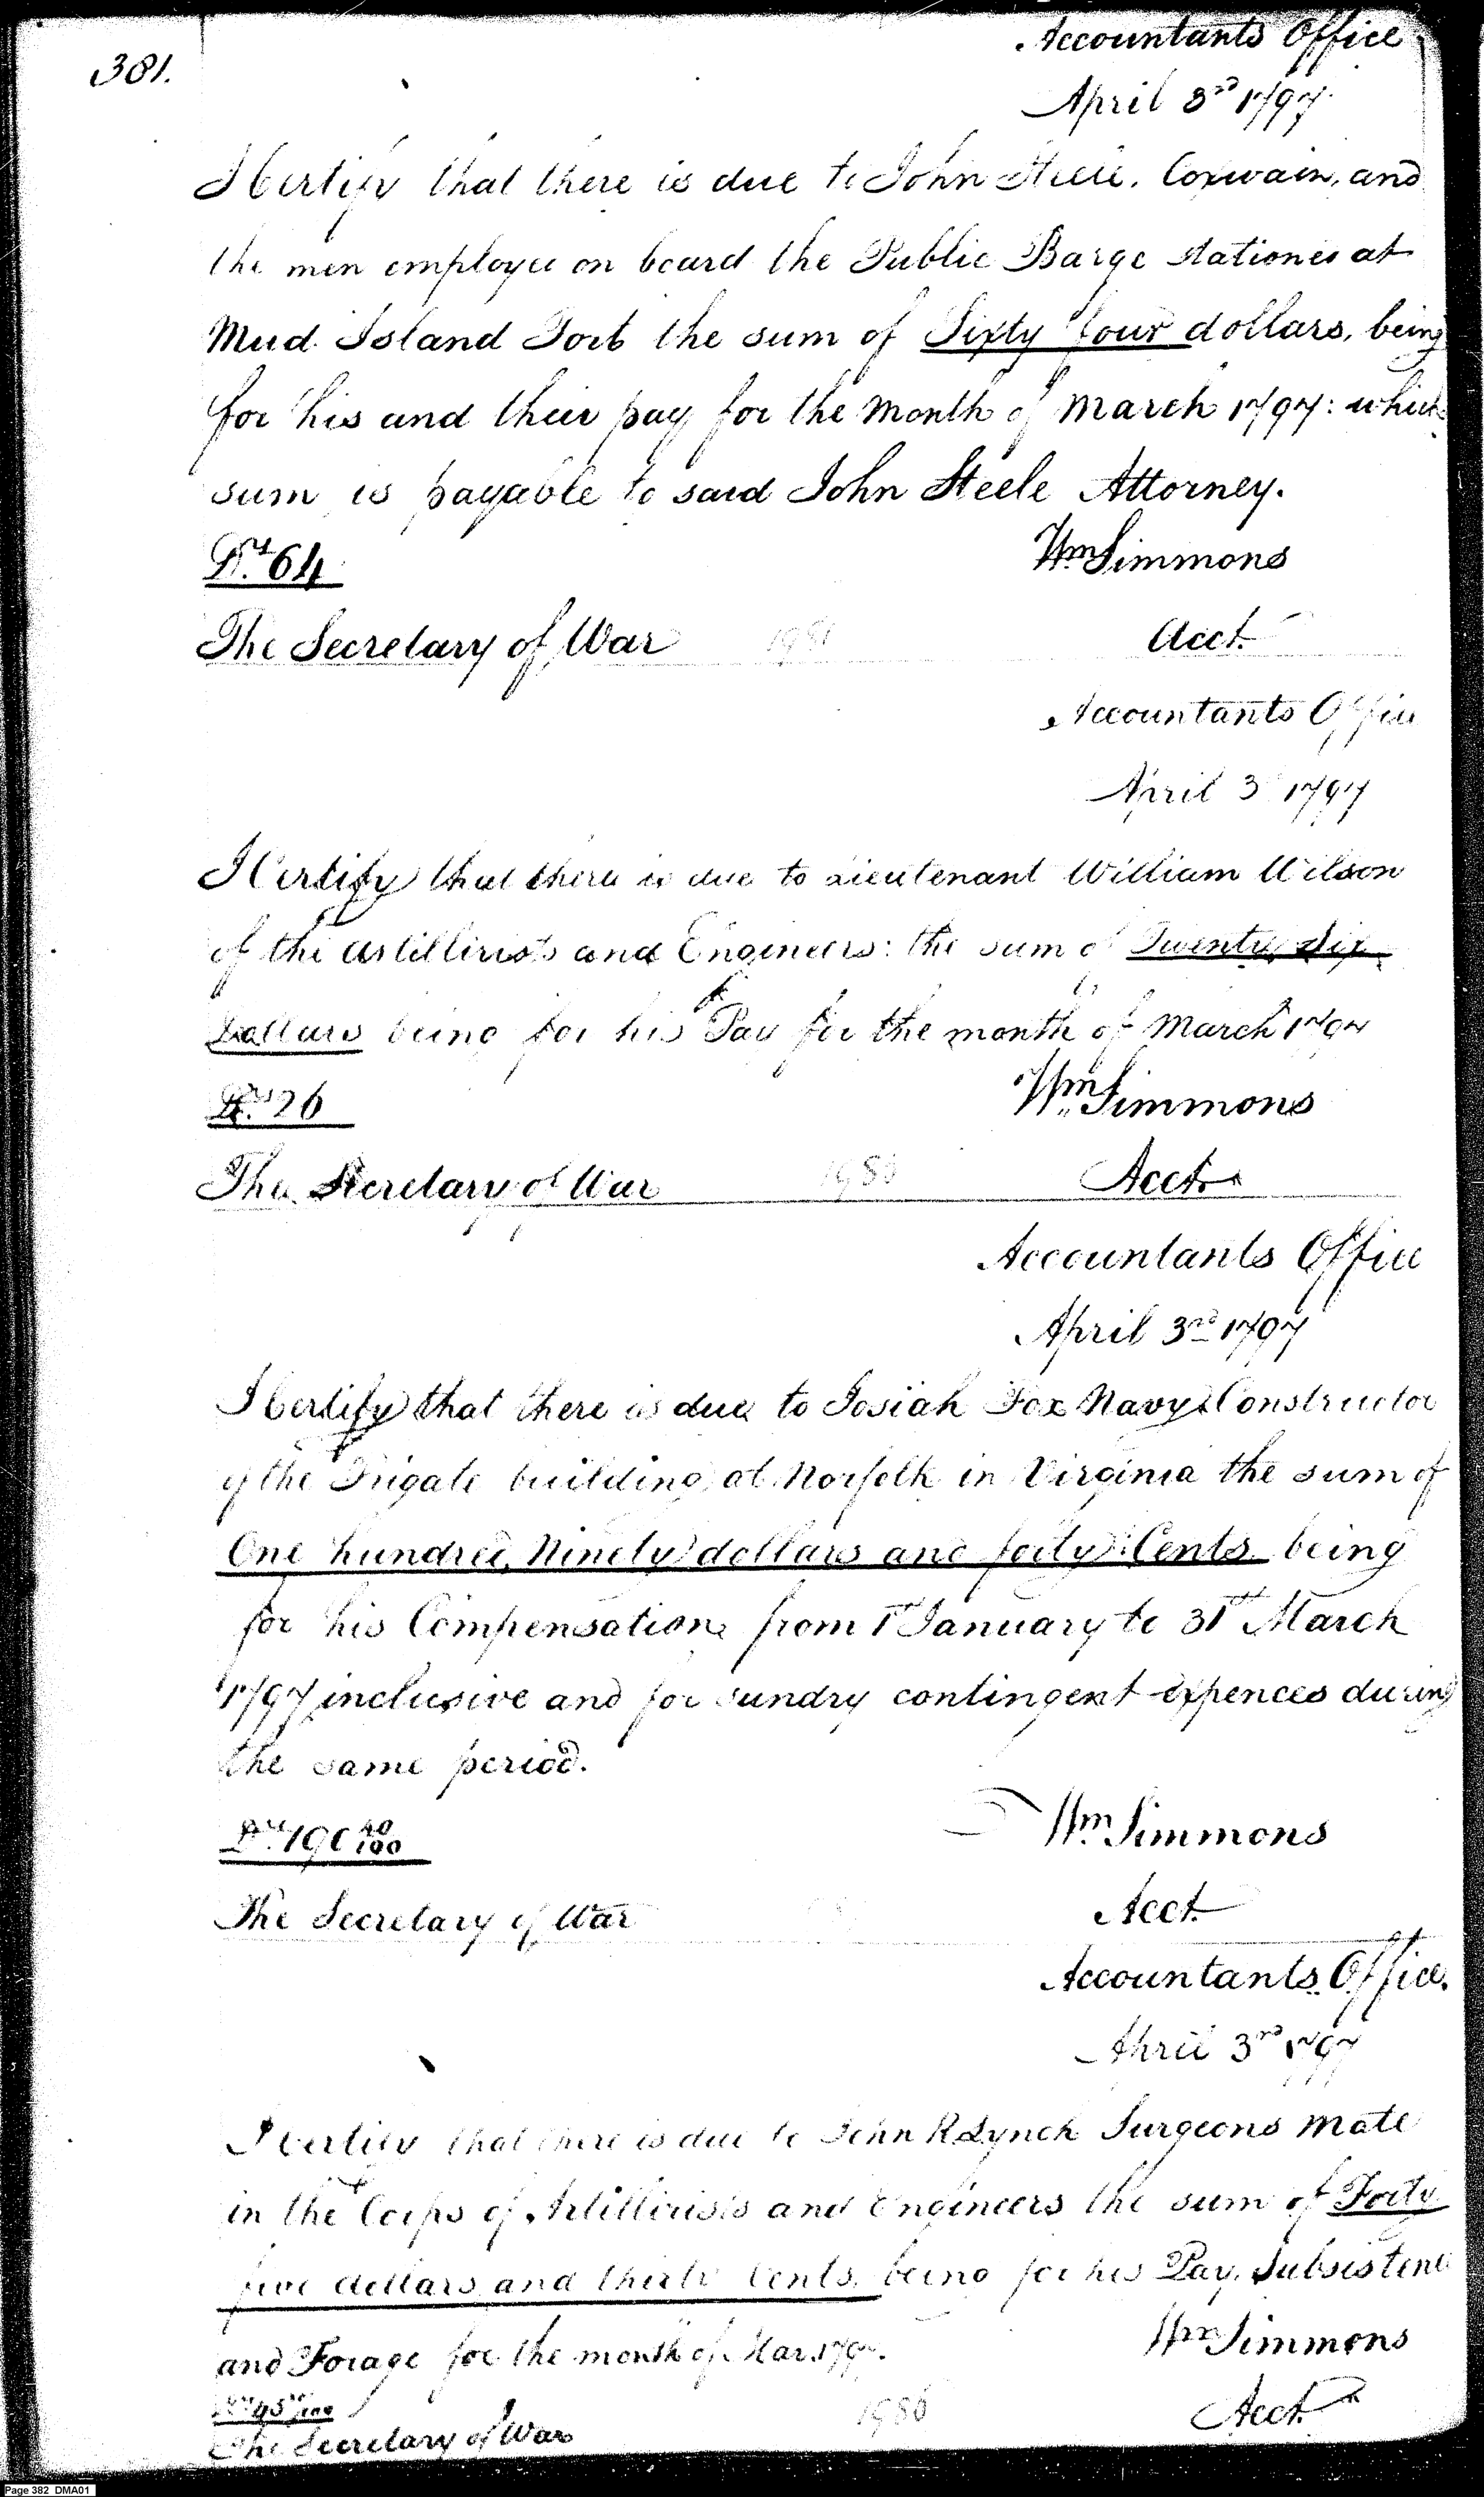 381.
Accountants Office
April 3rd 1797.
I Certify that there is due to John Steele, Coxwain, and
the men employed on board the Public Barge stationed at
Mud Island Fort the sum of Sixty four dollars, being
for his and their pay for the Month of March 1797: which
sum is payable to said John Steele Attorney.
Drs. 64
Wm Simmons
The Secretary of War
Acct.
Accountants Office
April 3d 1797
I Certify that there is due to Lieutenant William Wilson
of the Artillirists and Engineers: the sum of Twenty Six
Dollars being for his Pay for the month of March 1797
Drs. 26
Wm Simmons
The Secretary of War
Acct.
Accountants Office
April 3rd 1797
I Certify that there is due to Josiah Fox Navy Constructor
of the Frigate building at Norfolk in Virginia the sum of
One hundred, Ninety dollars and forty Cents being
for his Compensation from 1st January to 31st March
1797 inclusive and for sundry contingent expences during
the same period.
Drs. 190 40/100
Wm Simmons
The Secretary of War
Acct.
Accountants Office.
April 3rd 1797
I certify that there is due to John R. Lynch Surgeons Mate
in the Corps of Artillirists and Engineers the sum of Forty
five dollars and thirty Cents, being for his Pay, Subsistence
and Forage for the month of Mar. 1797.
Wm Simmons
Drs. 45 30/100
Acct.
The Secretary of War
Page 382 DMA01